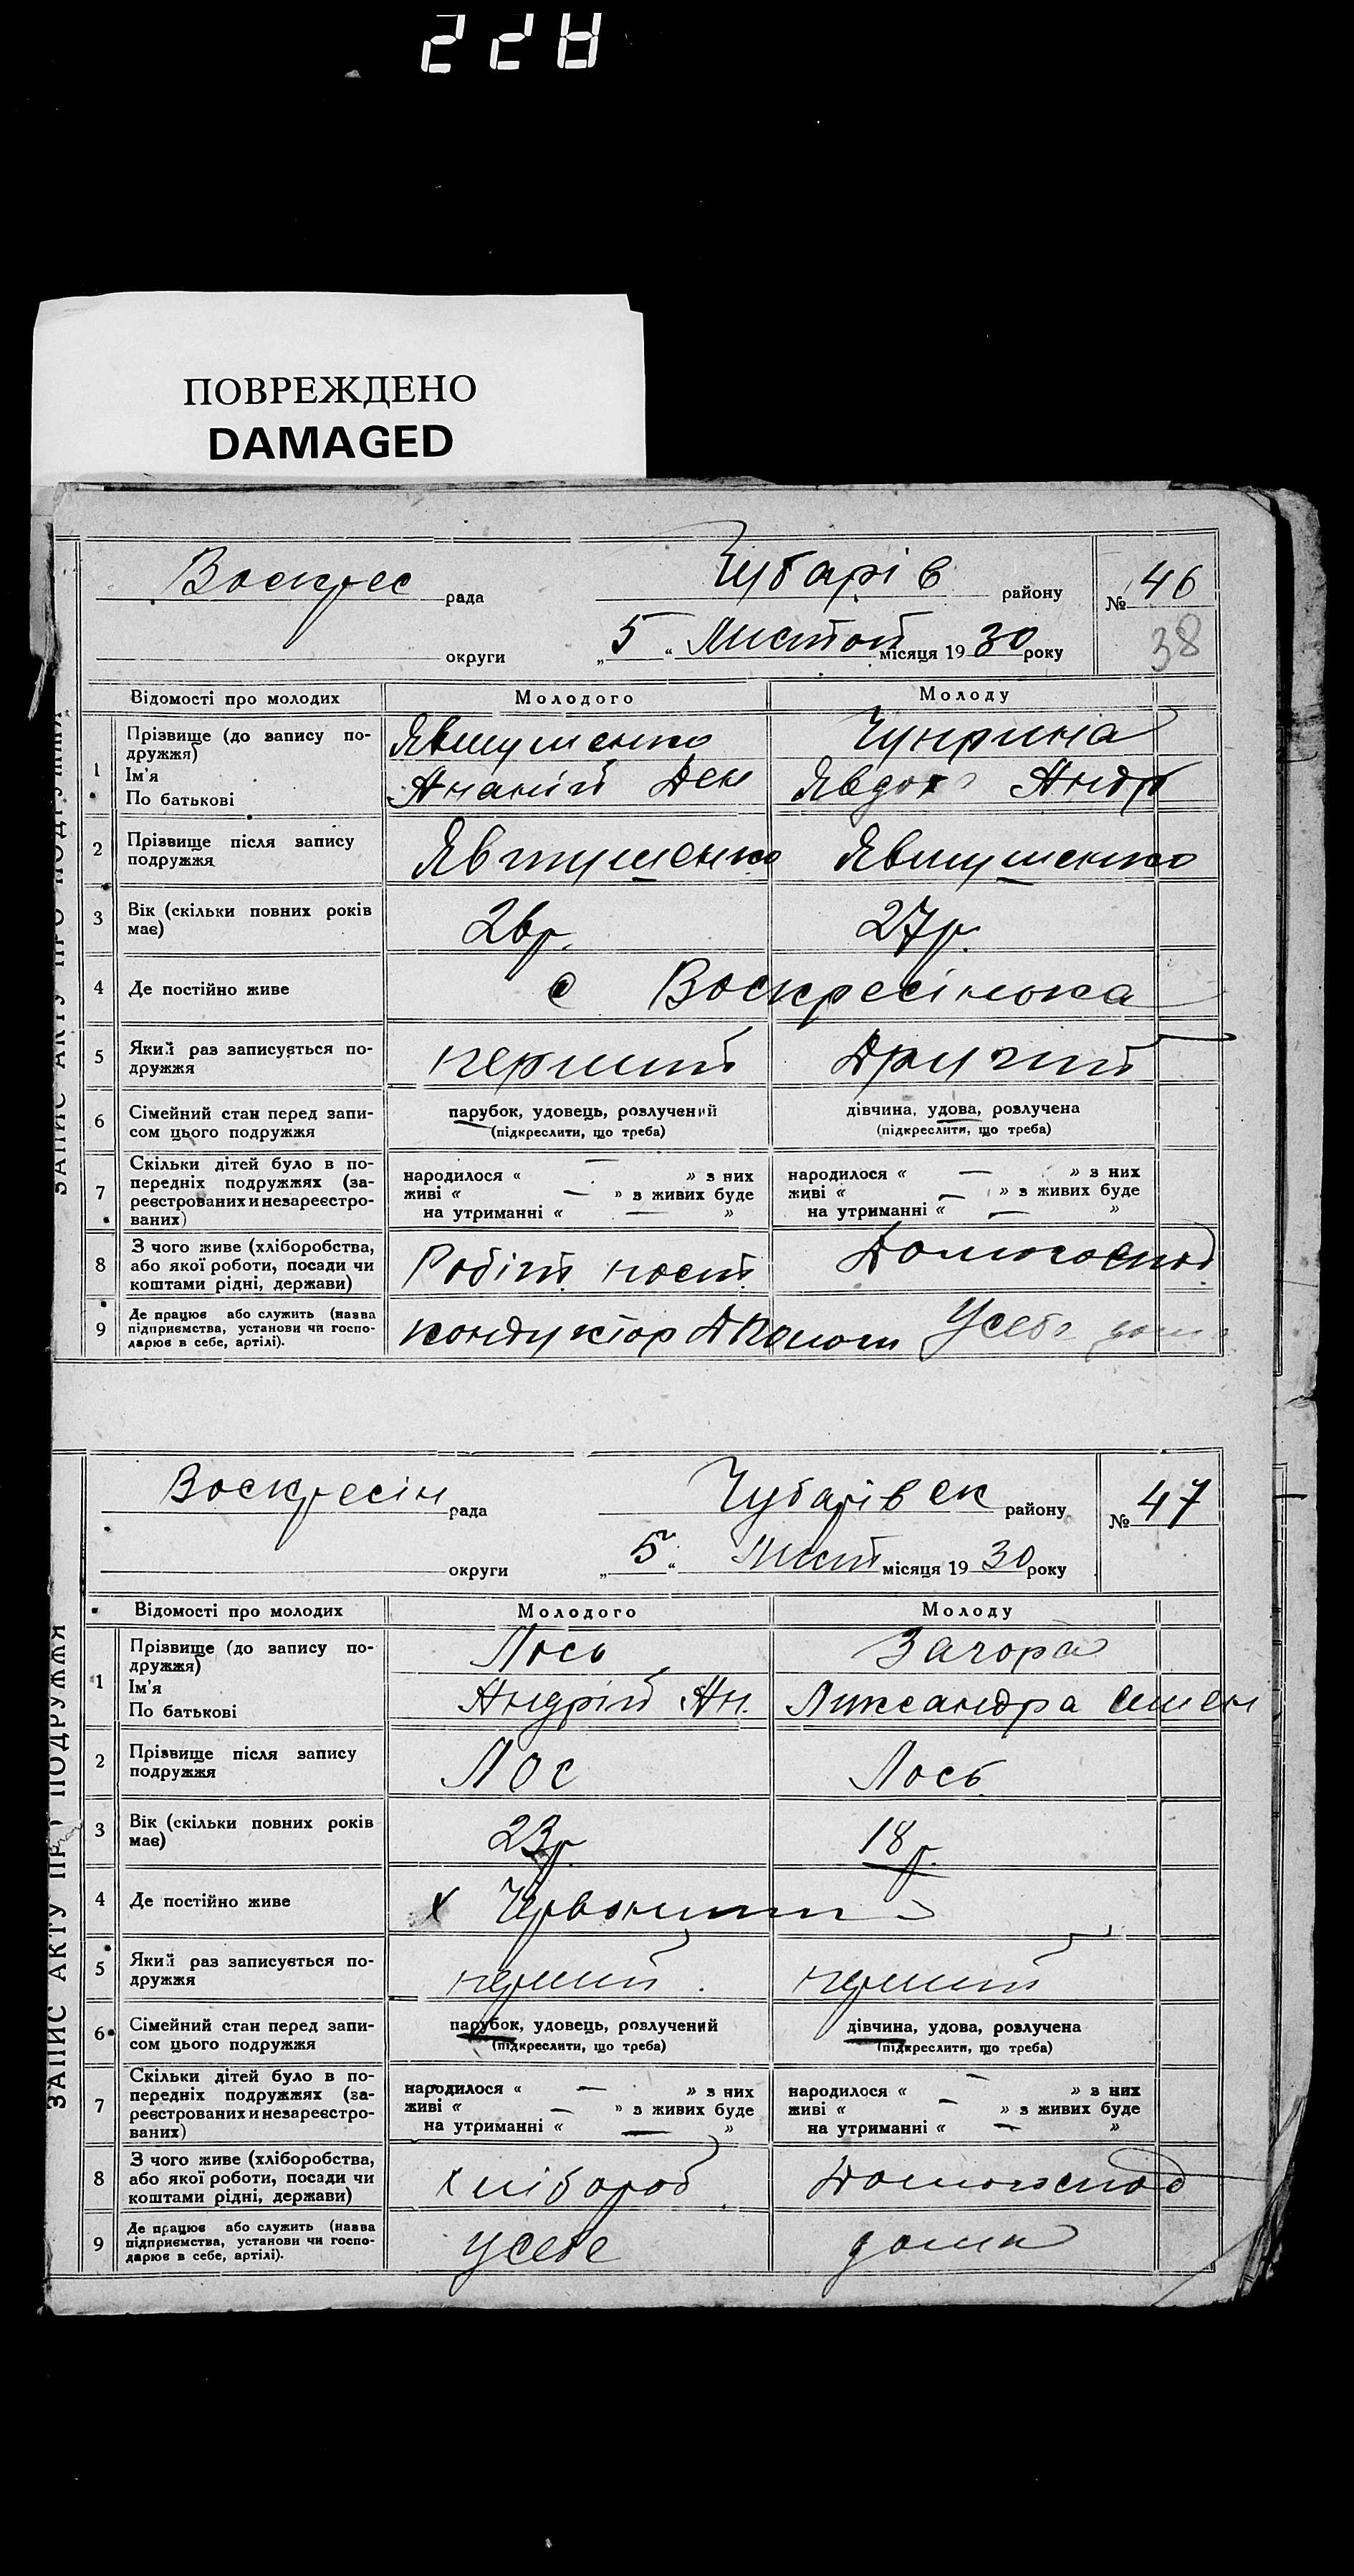 228
ПОВРЕЖДЕНО
DAMAGED
ЗАПИС АКТУ ПРО ПОДРУЖЖЯ
Воскрес рада Чубарів району № 46
округи „ 5 “ Листоп місяця 19 30 року 38
Відомості про молодих Молодого Молоду
1 Прізвище (до запису по-
дружжя) Явтушенко Чуприна
Ім'я
По батькові Ананій Ден Явдох Андр
2 Прізвище після запису
подружжя Явтушенко Явтушенко
3 Вік (скільки повних років
має) 26р. 27р.
4 Де постійно живе с Воскресінська
5 Який раз записується по-
дружжя перший Другий
6 Сімейний стан перед запи-
сом цього подружжя парубок, удовець, розлучений дівчина, удова, розлучена
(підкреслити, що треба) (підкреслити, що треба)
7 Скільки дітей було в по-
передніх подружжях (за-
реєстрованих и незареєстро-
ваних)
народилося « — » з них народилося « — » з них
живі « — » з живих буде живі « — » з живих буде
на утриманні « — » на утриманні « — »
8 З чого живе (хліборобства,
або якої роботи, посади чи
коштами рідні, держави) Робітн Домогоспод
9 Де працює або служить (назва
підприємства, установи чи госпо-
дарює в себе, артілі). кондуктор Усебе дома
ЗАПИС АКТУ ПРО ПОДРУЖЖЯ
Воскресін рада Чубарівск району № 47
округи „ 5 “ Лист місяця 19 30 року
Відомості про молодих Молодого Молоду
1 Прізвище (до запису по-
дружжя) Лось Загора
Ім'я
По батькові Андрій Ан. Ликсандра Семен
2 Прізвище після запису
подружжя Лос Лось
3 Вік (скільки повних років
має) 23р. 18р.
4 Де постійно живе х
5 Який раз записується по-
дружжя перший перший
6 Сімейний стан перед запи-
сом цього подружжя парубок, удовець, розлучений дівчина, удова, розлучена
(підкреслити, що треба) (підкреслити, що треба)
7 Скільки дітей було в по-
передніх подружжях (за-
реєстрованих и незареєстро-
ваних)
народилося « — » з них народилося « — » з них
живі « — » з живих буде живі « — » з живих буде
на утриманні « — » на утриманні « — »
8 З чого живе (хліборобства,
або якої роботи, посади чи
коштами рідні, держави) хлібороб Домогоспод
9 Де працює або служить (назва
підприємства, установи чи госпо-
дарює в себе, артілі). усебе дома